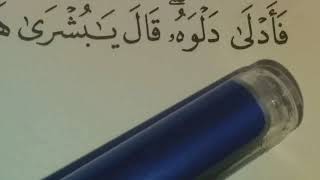 فَأَدْلَىٰ دَلْوَهُۥۖ قَالَ يَـٰبُشْرَىٰ هَـ